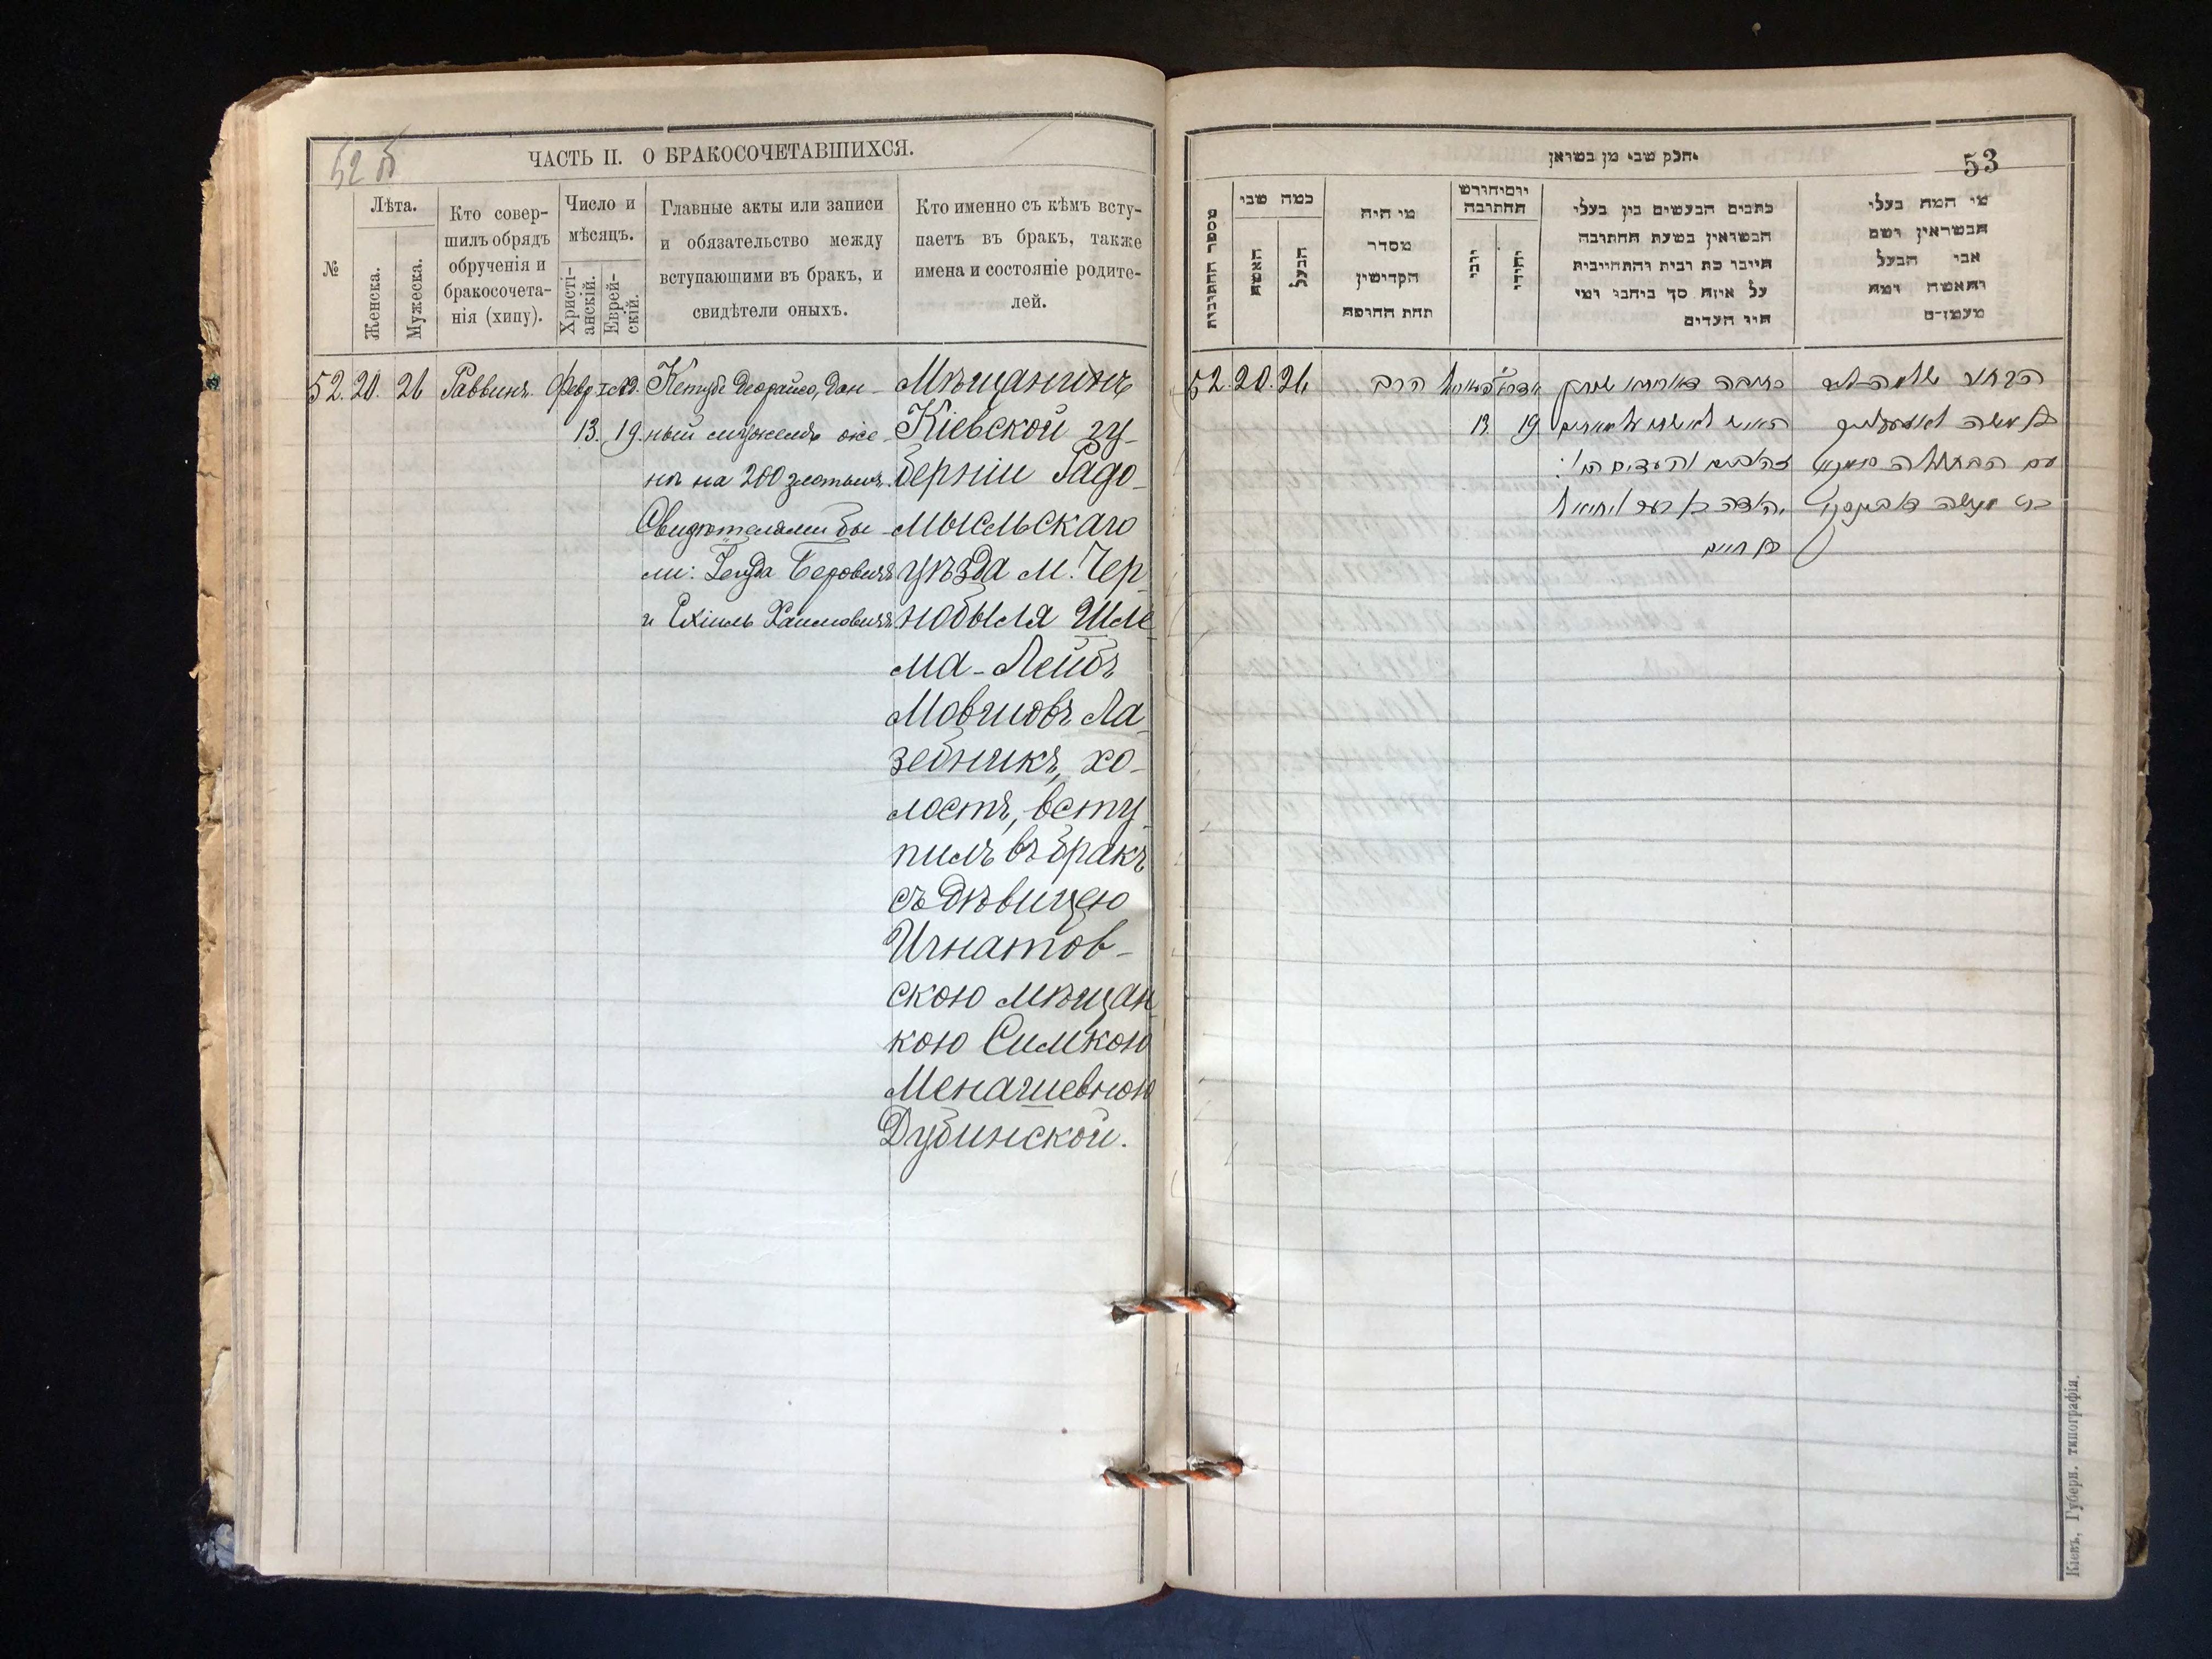 52 об
ЧАСТЬ II. О БРАКОСОЧЕТАВШИХСЯ.
№
Лѣта.
Женска.
Мужеска.
Кто совер-
шилъ обрядъ
обрученія и
бракосочета-
нія (хипу).
Число и
мѣсяцъ.
Христі-
анскій.
Еврей-
скій.
Главные акты или записи
и обязательство между
вступающими въ бракъ, и
свидѣтели оныхъ.
Кто именно съ кѣмъ всту-
паетъ въ бракъ, также
имена и состояніе родите-
лей.
52. 20. 26 Раввинъ. Февр
13. 19.
Кетубе Деорайсо, дан-
ный мужемъ же-
нѣ на 200 злотыхъ.
Свидѣтелями бы-
ли: Іегуда Беровичъ
и Ехіель Хаимовичъ
Мѣщанинъ
Кіевской гу-
берніи Радо-
мысльскаго
уѣзда м. Чер-
нобыля Шле-
ма-Лейбъ
Мовшовъ Ла-
зебникъ, хо-
лостъ, всту-
пилъ въ бракъ
съ дѣвицею
Игнатов-
скою мѣщан-
кою Симкою
Менашевною
Дубинской.
חלק שני מן נשואין
53
מספר החתונות
כמה שני
האשה
הבעל
מי היה
מסדר
הקדושין
תחת החופה
יום וחודש
החתונה
יוני
יהודי
כתבים הנעשים בין בעלי
הנשואין בשעת החתונה
היינו כת ובית והתחייבות
על איזה סך ביחבו ומי
היו העדים
מי המה בעלי
הנשואין ושם
אבי הבעל
והאשה ומה
מעמדם
52. 20. 26 הרב
13 19
כתובה דאורייתא
והעדים
בן חיים
הבחור שלמה ליב
בן משה לאזעבניק
עם הבתולה סימקא
בת מנשה דאבינסקי
Кіевъ, Губерн. типографія.